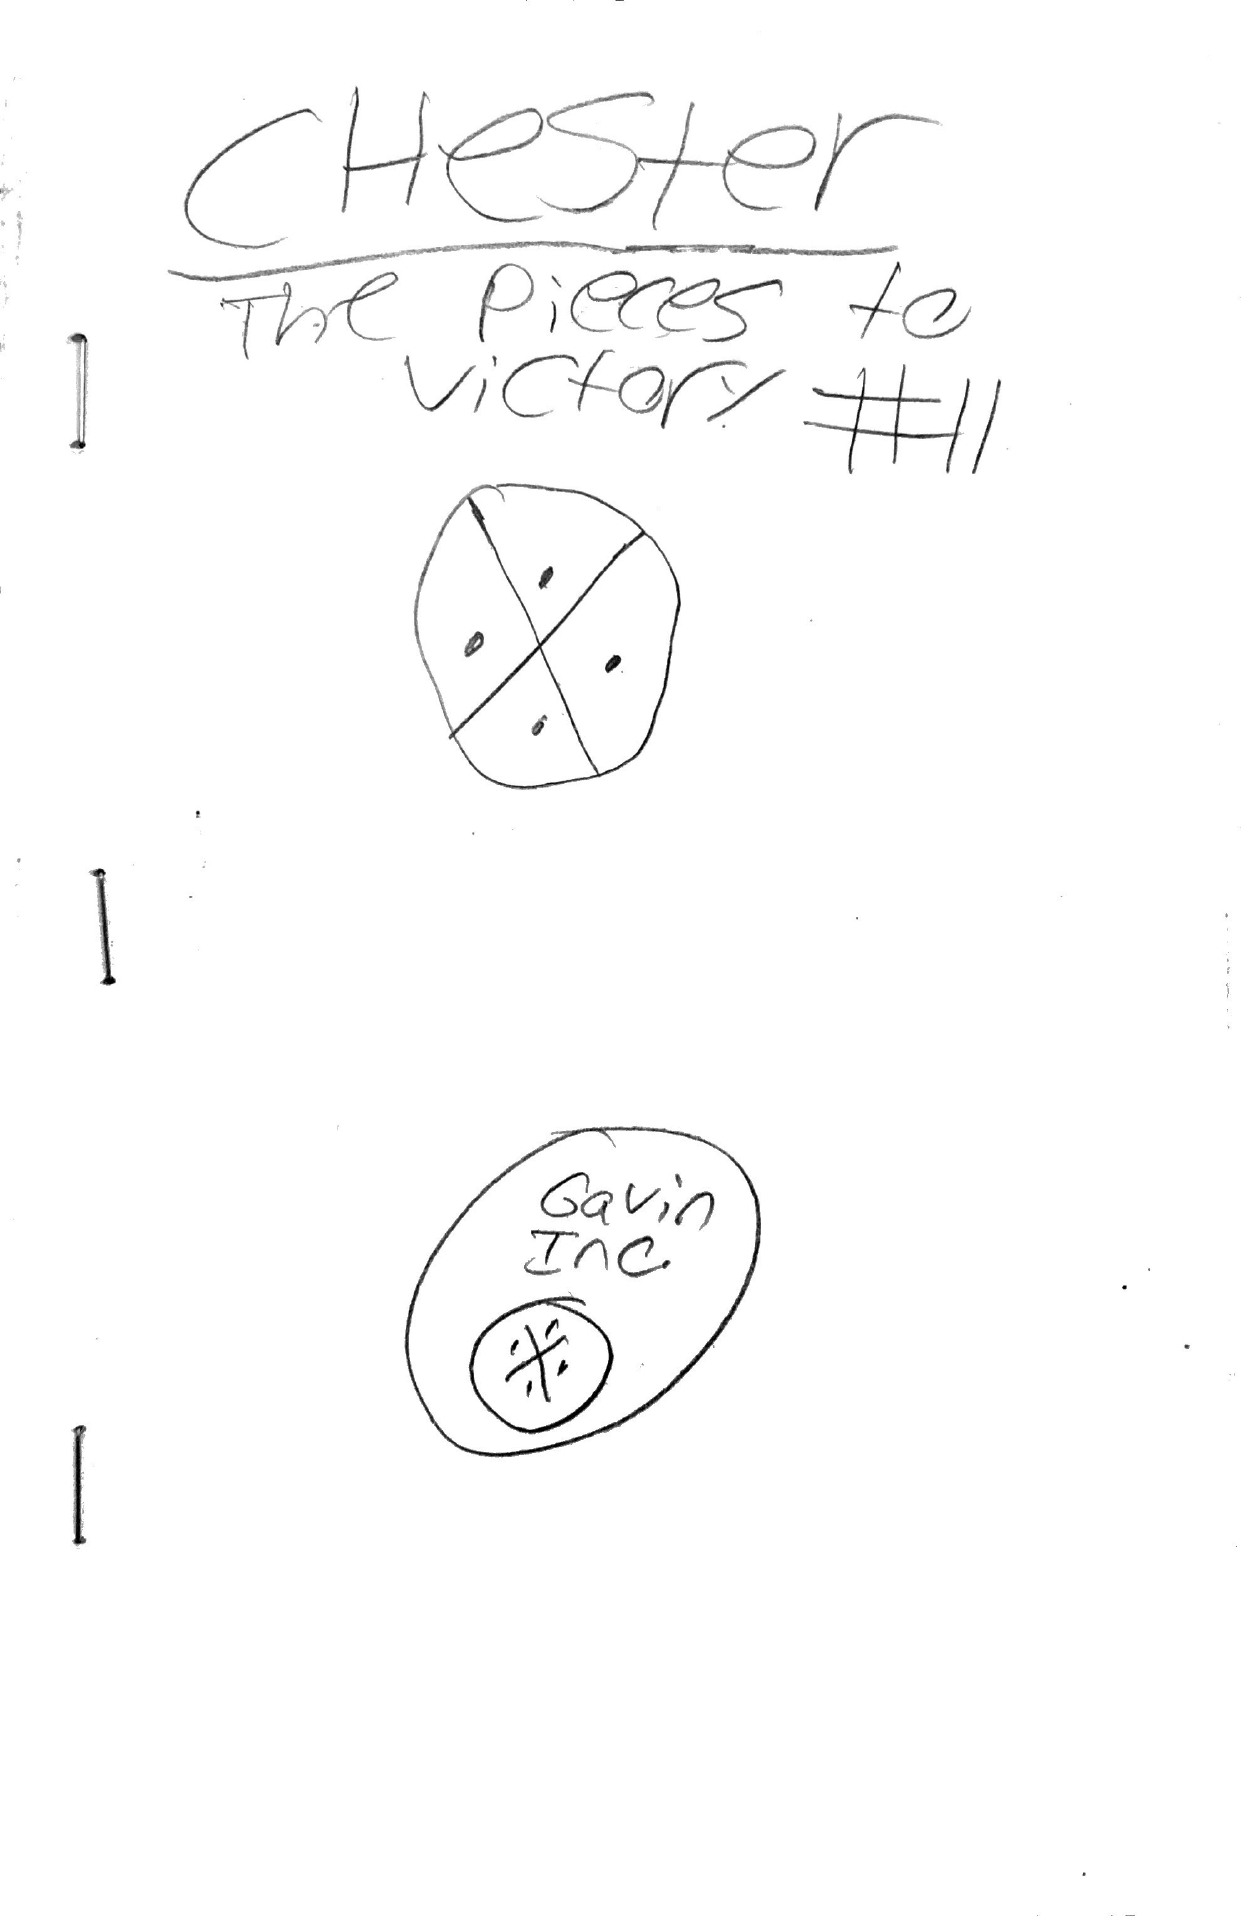 CHester
The Pieces to
victory #11
Gavin
Inc.